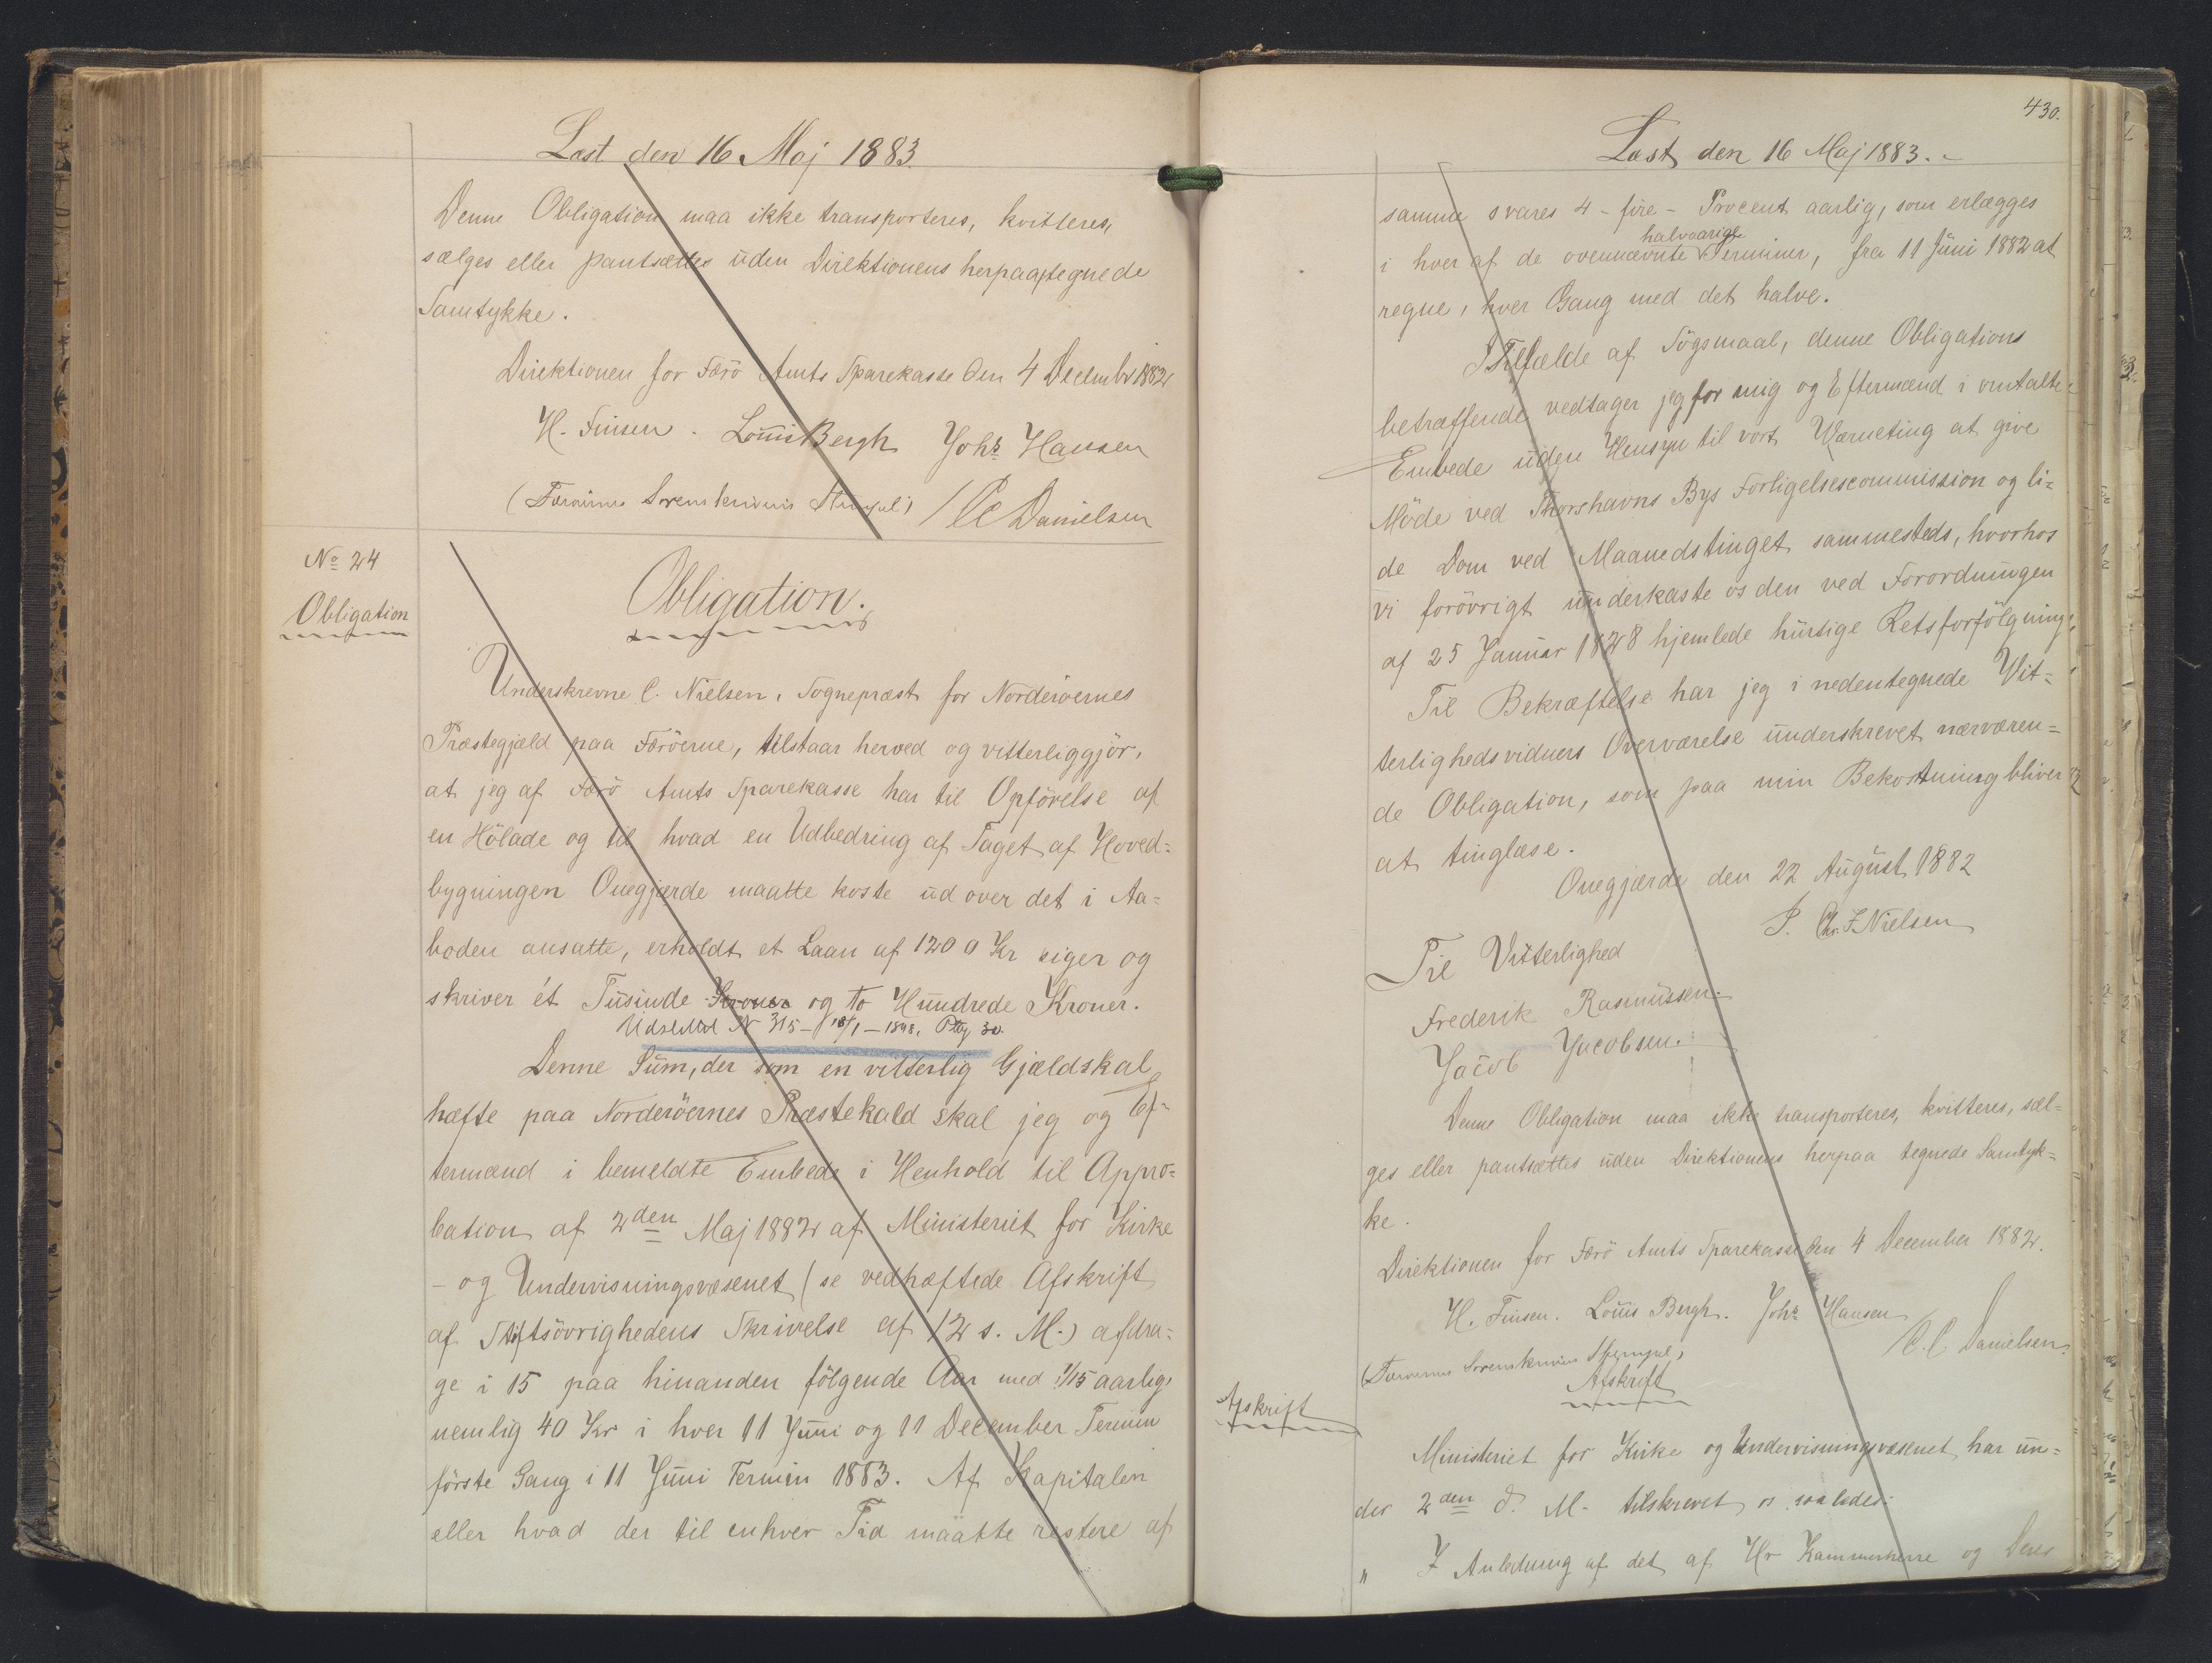 Læst den 16 Maj 1883
Denne Obligation maa ikke transporteres, kvitteres,
sælges eller pantsættes uden Direktionens herpaategnede
Samtykke.
Direktionen for Færö Amts Sparekasse Den 4 Decembr 1882
H. Finsen. Louis Bergh Johs Hansen
(Færöernes Sorenskriveris Stempel) / P C Danielsen
No 24
Obligation
Obligation.
Underskrevne C. Nielsen, Sognepræst for Norderöernes
Præstegjæld paa Færöerne, tilstaar herved og vitterliggjör,
at jeg af Færö Amts Sparekasse har til Opförelse af
en Hölade og til hvad en Udbedring af Taget af Hoved=
bygningen Onegjærde maatte koste ud over det i Aa=
boden ansatte, erholdt et Laan af 1200 Kr siger og
skriver ét Tusinde Kroner og to Hundrede Kroner.
Udslettet N 315 - 18/1 - 1898. Ptg. 30.
Denne Sum, der som en vitterlig Gjældskal
hæfte paa Norderöernes Præstekald skal jeg og Ef=
termænd i bemeldte Embede i Henhold til Appro=
bation af 2den Maj 1882 af Ministeriet for Kirke
- og Undervisningsvæsenet (se vedhæftede Afskrift
af Stiftsövrighedens Skrivelse af 12 s. M.) afdra=
ge i 15 paa hinanden fölgende Aar med 1/15 aarlig,
nemlig 40 Kr i hver 11 Juni og 11 December Termin
förste Gang i 11 Juni Termin 1883. Af Kapitalen
eller hvad der til enhver Tid maatte restere af
430.
Læst den 16 Maj 1883.-
samme svares 4 - fire - Procent aarlig, som erlægges
halvaarige
i hver af de ovennævnte Terminer, fra 11 Juni 1882 at
regne, hver Gang med det halve.
I Tilfælde af Sögsmaal, denne Obligations
betræffende vedtager jeg for mig og Eftermænd i omtalte
Embede uden Hensyn til vort Værneting at give
Möde ved Thorshavns Bys Forligelsescommission og li=
de Dom ved Maanedstinget sammesteds, hvorhos
vi forövrigt underkaste os den ved Forordningen
af 25 Januar 1828 hjemlede hurtige Retsforfölgning.
Til Bekræftelse har jeg i nedentegnede Vit=
terlighedsvidners Overværelse underskrevet nærværen=
de Obligation, som paa min Bekostning bliver
at tinglæse.
Onegjærde den 22 August 1882
P. Chr. F. Nielsen
Til Vitterlighed
Frederik Rasmussen.
Jacob Jacobsen.
Denne Obligation maa ikke transporteres, kvitteres, sæl=
ges eller pantsættes uden Direktionens herpaa tegnede Samtyk=
ke.
Direktionen for Færö Amts Sparekasse Den 4 December 1882.
H. Finsen. Louis Bergh. Johs Hansen
/ P. C. Danielsen.
(Færöernes Sorenskriveris Stempel)
Afskrift
Afskrift
Ministeriet for Kirke og Undervisningsvæsenet har un=
der 2den d. M. tilskrevet os saaledes:
" I Anledning af det af Hr Kammerherre og Deres